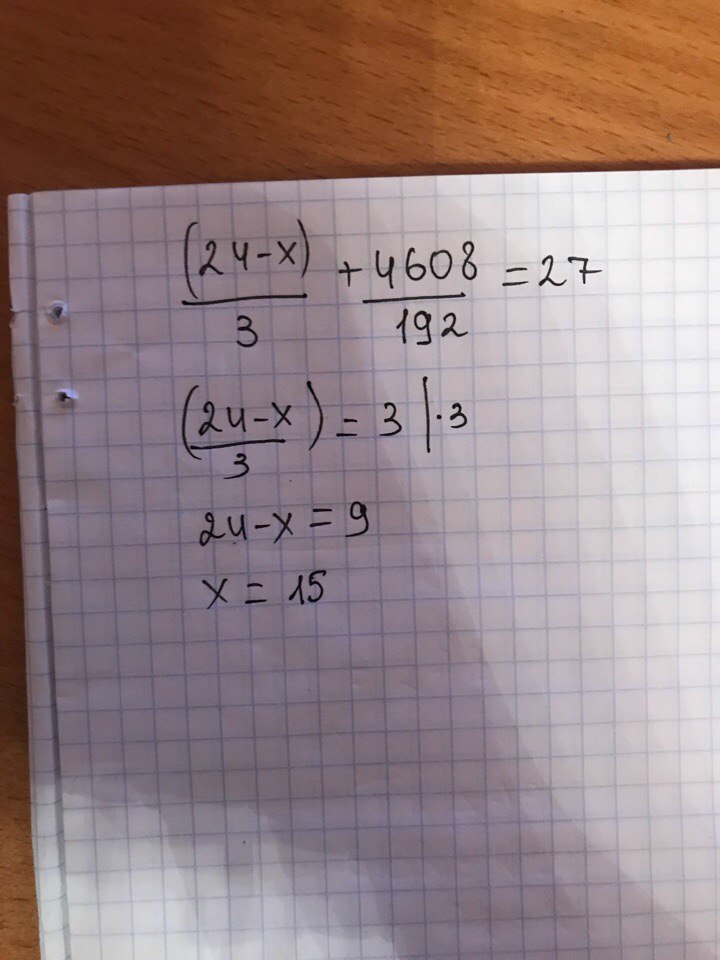 (24-x)/3 + 4608/192 = 27
(24-x/3) = 3 |·3
24-x = 9
x = 15